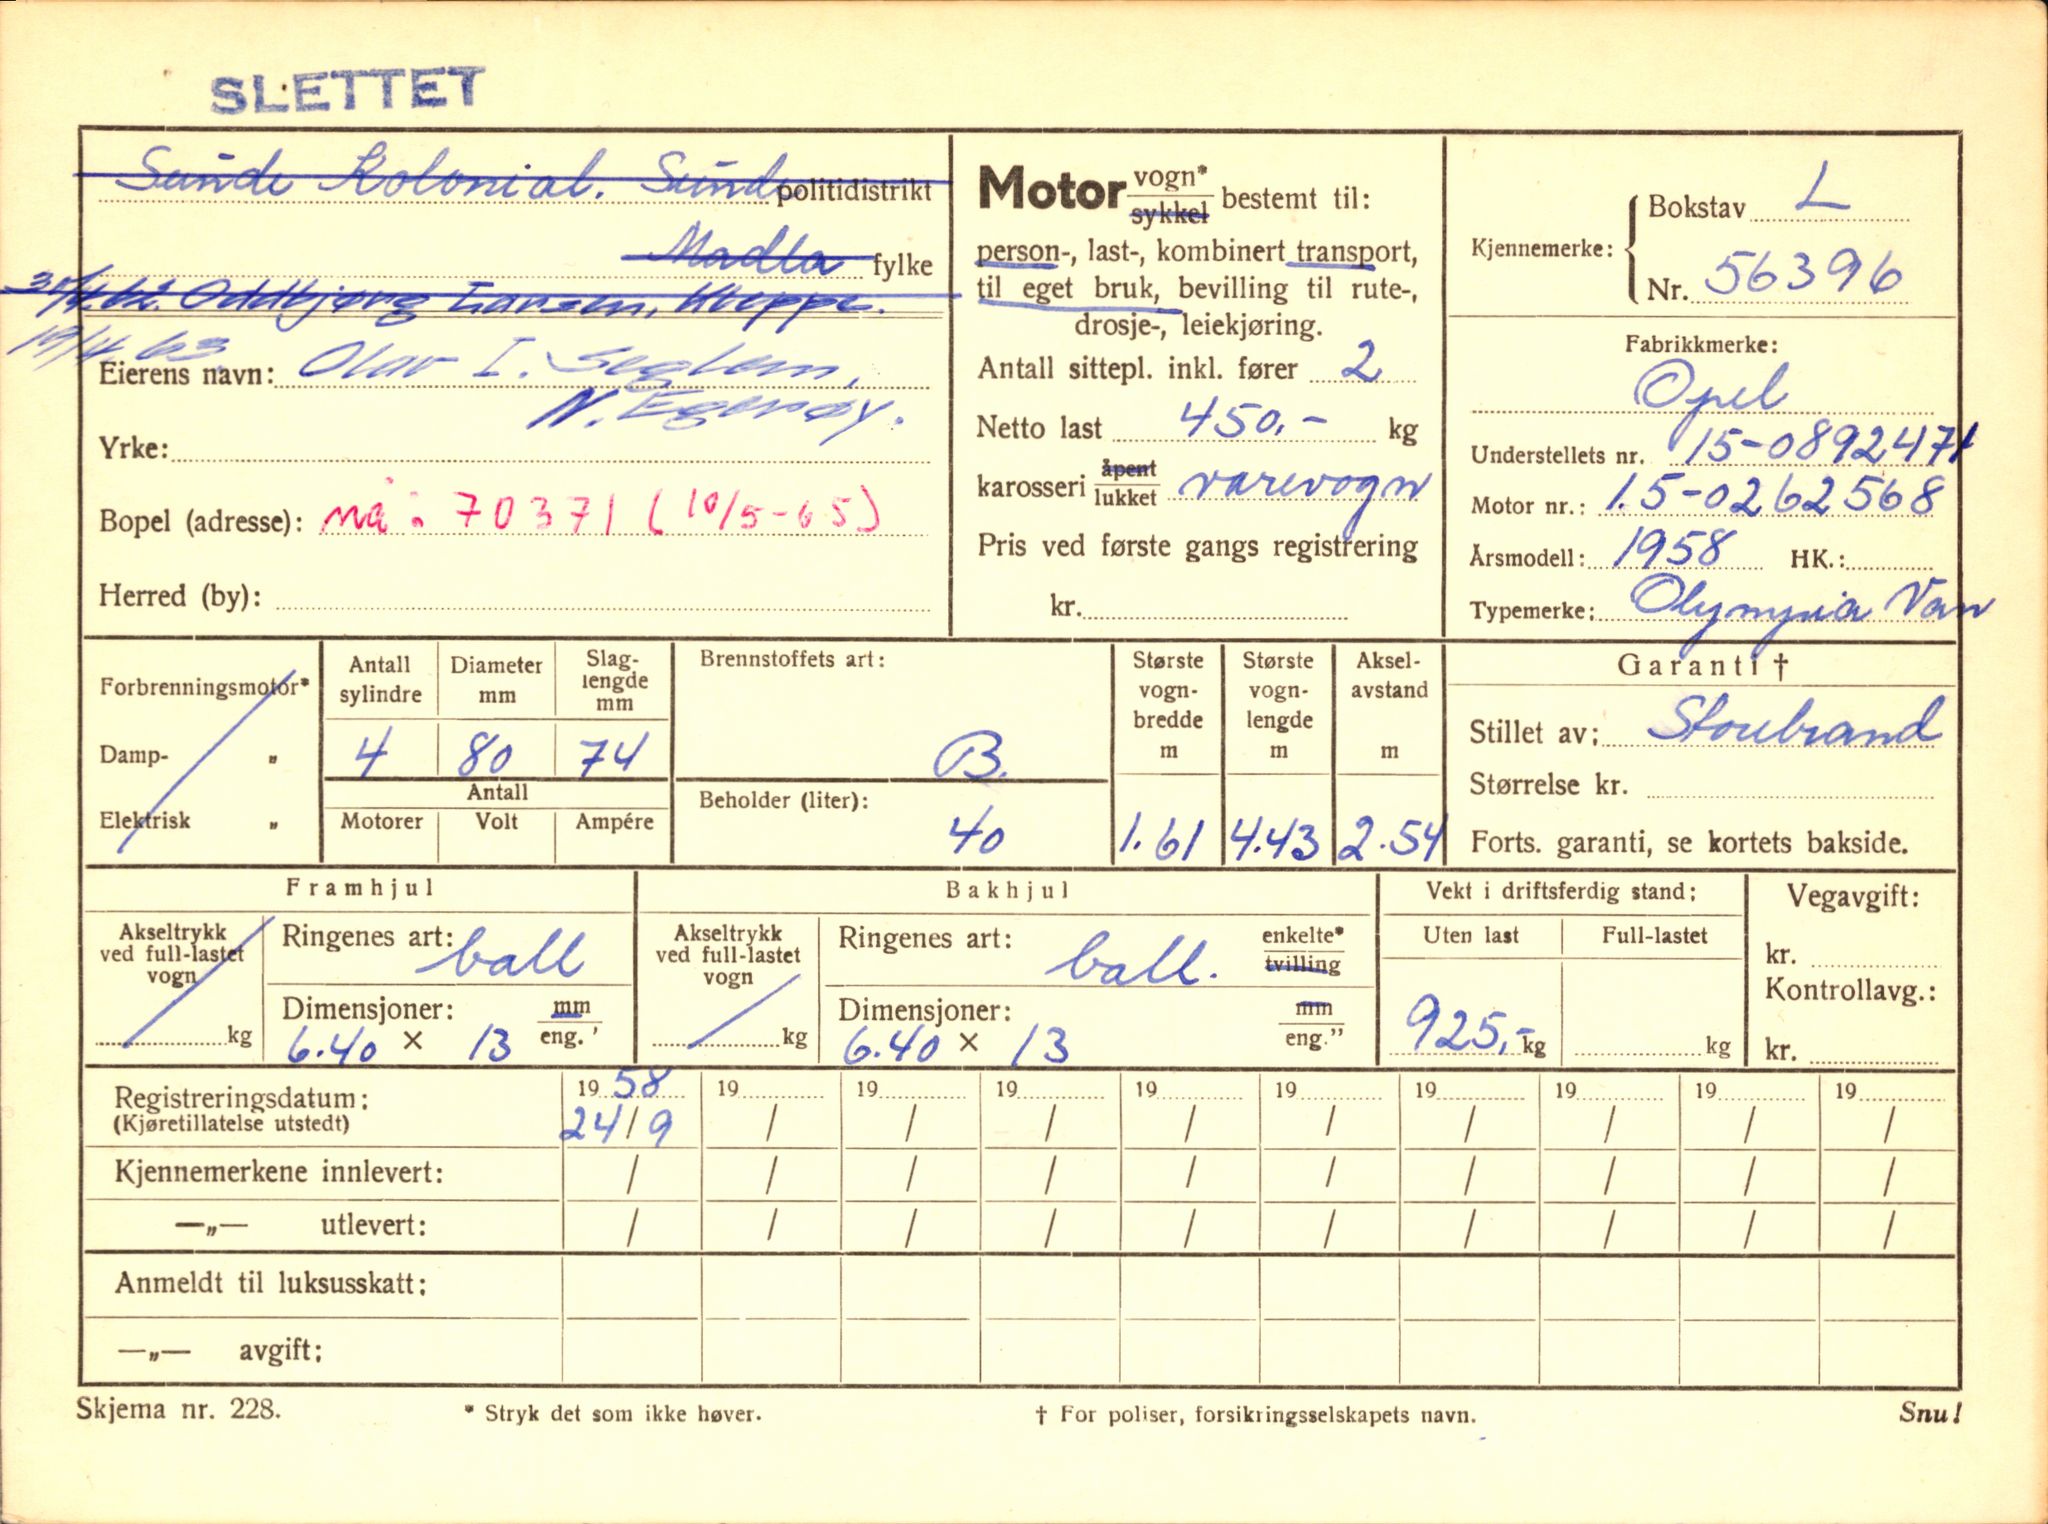 SLETTET
Sunde Kolonial. Sunde politidistrikt
Madla fylke
30/4.62. Oddbjørg Larsen, Kleppe.
19/4 63.
Eierens navn: Olav I. Seglem,
N. Egerøy.
Yrke:
Bopel (adresse): nå: 70371 (10/5-65)
Herred (by):
Motor vogn* sykkel bestemt til:
person-, last-, kombinert transport,
til eget bruk, bevilling til rute-,
drosje-, leiekjøring.
Antall sittepl. inkl. fører 2
Netto last 450,- kg
karosseri åpent lukket varevogn
Pris ved første gangs registrering
kr.
Kjennemerke: Bokstav L
Nr. 56396
Fabrikkmerke:
Opel
Understellets nr. 15-0892471
Motor nr.: 1.5-0262568
Årsmodell: 1958 HK.:
Typemerke: Olympia Van
Forbrenningsmotor*
Damp- „
Elektrisk „
Antall sylindre
Diameter mm
Slag-lengde mm
4 80 74
Antall
Motorer Volt Ampére
Brennstoffets art:
B.
Beholder (liter):
40
Største vogn-bredde m
1.61
Største vogn-lengde m
4.43
Aksel-avstand m
2.54
Garanti †
Stillet av: Storebrand
Størrelse kr.
Forts. garanti, se kortets bakside.
Framhjul
Akseltrykk ved full-lastet vogn
kg
Ringenes art: ball
Dimensjoner: mm
6.40 × 13 eng.'
Bakhjul
Akseltrykk ved full-lastet vogn
kg
Ringenes art: ball. enkelte* tvilling
Dimensjoner: mm
6.40 × 13 eng."
Vekt i driftsferdig stand:
Uten last Full-lastet
925,- kg kg
Vegavgift:
kr.
Kontrollavg.:
kr.
Registreringsdatum: 19 58 19 19 19 19 19 19 19 19 19
(Kjøretillatelse utstedt) 24/9 / / / / / / / / /
Kjennemerkene innlevert: / / / / / / / / / /
—„— utlevert: / / / / / / / / / /
Anmeldt til luksusskatt:
—„— avgift:
Skjema nr. 228. * Stryk det som ikke høver. † For poliser, forsikringsselskapets navn. Snu!